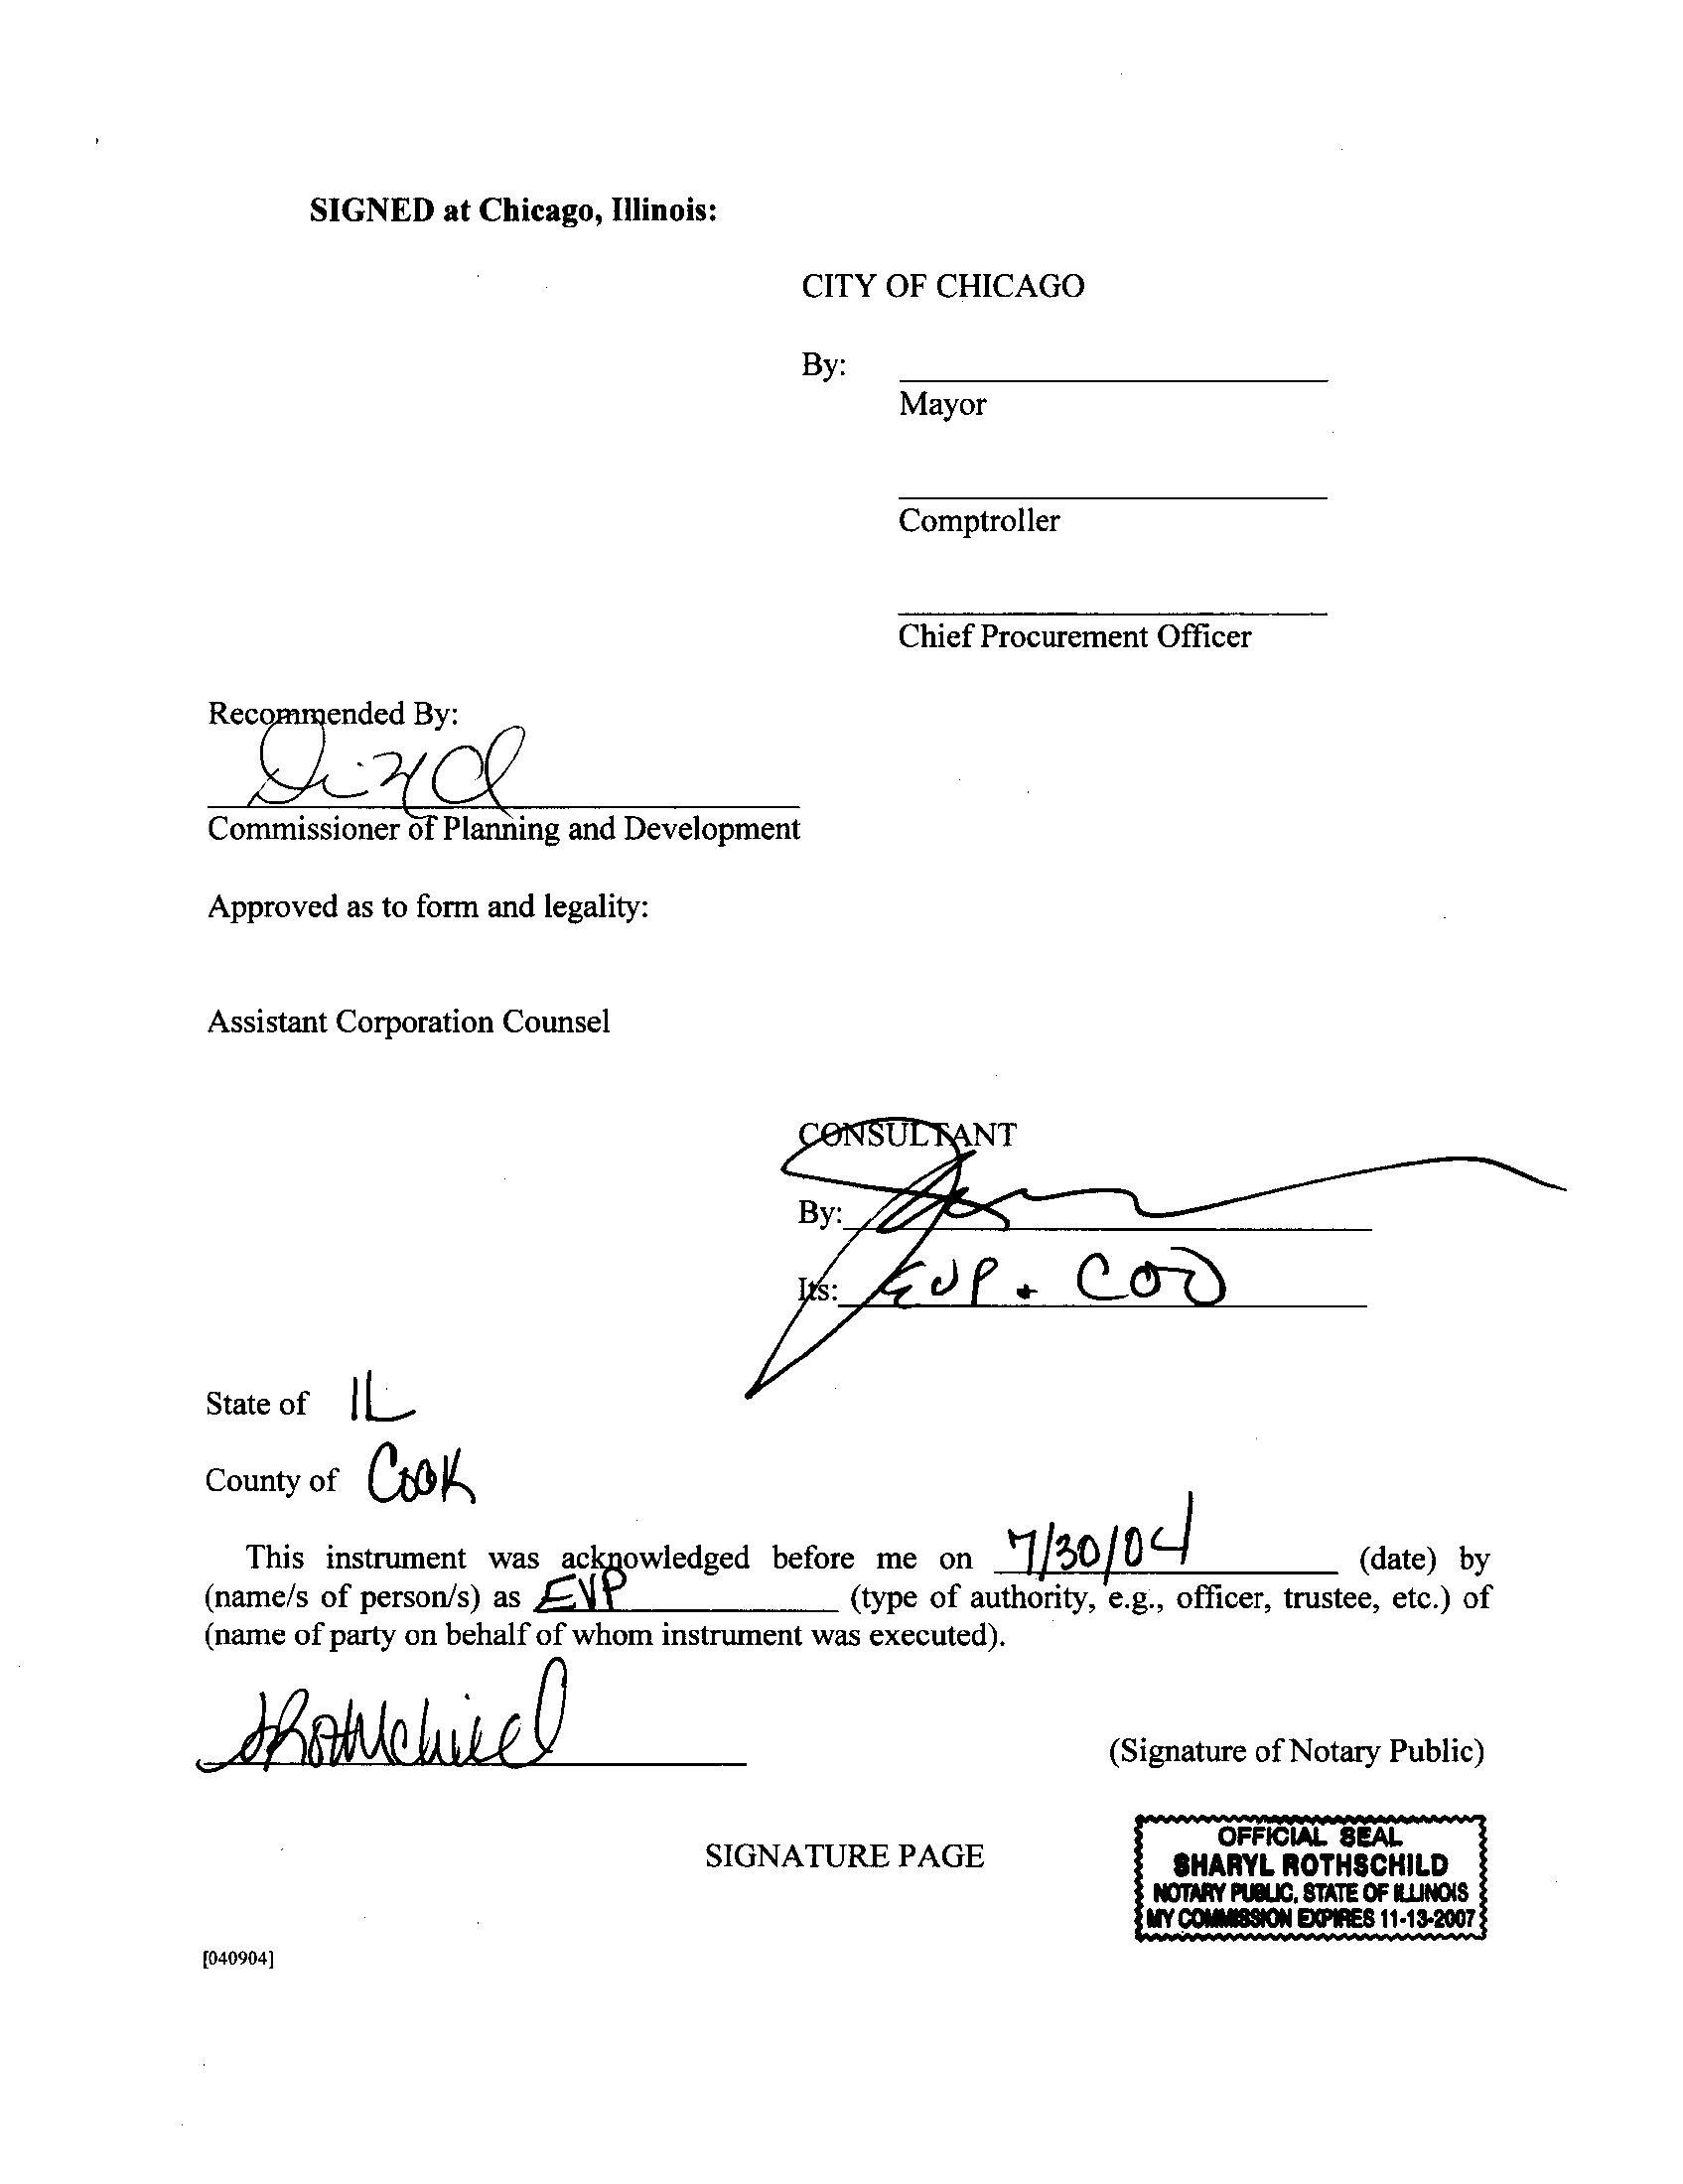 SIGNED at Chicago, Illinois:
CITY OF CHICAGO
By:
Mayor
Comptroller
Chief Procurement Officer
Recommended By:
Commissioner of Planning and Development
Approved as to form and legality:
Assistant Corporation Counsel
CONSULTANT
By:
Its: EVP + COO
State of IL
County of Cook
This instrument was acknowledged before me on 7/30/04 (date) by
(name/s of person/s) as EVP (type of authority, e.g., officer, trustee, etc.) of
(name of party on behalf of whom instrument was executed).
SRothschild
(Signature of Notary Public)
SIGNATURE PAGE
OFFICIAL SEAL
SHARYL ROTHSCHILD
NOTARY PUBLIC, STATE OF ILLINOIS
MY COMMISSION EXPIRES 11-13-2007
[040904]